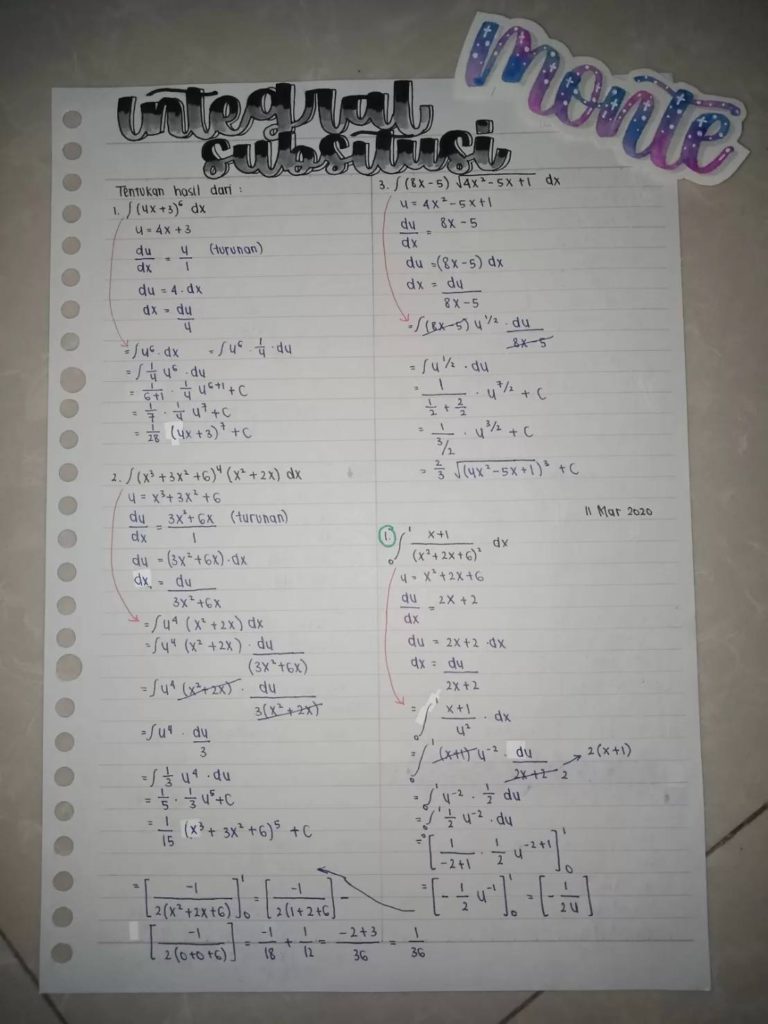 monte
integral
subsitusi
Tentukan hasil dari :
1. ∫(4x+3)⁶ dx
u = 4x+3
du/dx = 4/1 (turunan)
du = 4 · dx
dx = du/4
= ∫u⁶ · dx = ∫u⁶ · 1/4 · du
= ∫ 1/4 u⁶ · du
= 1/(6+1) · 1/4 u⁶⁺¹ + C
= 1/7 · 1/4 u⁷ + C
= 1/28 (4x+3)⁷ + C
2. ∫(x³+3x²+6)⁴ (x²+2x) dx
u = x³+3x²+6
du/dx = (3x²+6x)/1 (turunan)
du = (3x²+6x) · dx
dx = du/(3x²+6x)
= ∫u⁴ (x²+2x) dx
= ∫u⁴ (x²+2x) · du/(3x²+6x)
= ∫u⁴ (x²+2x) · du/3(x²+2x)
= ∫u⁴ · du/3
= ∫ 1/3 u⁴ · du
= 1/5 · 1/3 u⁵ + C
= 1/15 (x³ + 3x² + 6)⁵ + C
3. ∫(8x-5) √(4x²-5x+1) dx
u = 4x²-5x+1
du/dx = 8x-5
du = (8x-5) dx
dx = du/(8x-5)
= ∫(8x-5) u^(1/2) · du/(8x-5)
= ∫u^(1/2) · du
= 1/(1/2 + 2/2) · u^(7/2) + C
= 1/(3/2) · u^(3/2) + C
= 2/3 √(4x²-5x+1)³ + C
11 Mar 2020
1. ₀∫¹ (x+1)/(x²+2x+6)² dx
u = x²+2x+6
du/dx = 2x+2
du = 2x+2 · dx
dx = du/(2x+2)
= ₀∫¹ (x+1)/u² · dx
= ₀∫¹ (x+1) u⁻² · du/(2x+2) 2 → 2(x+1)
= ₀∫¹ u⁻² · 1/2 du
= ₀∫¹ 1/2 u⁻² · du
= [1/(-2+1) · 1/2 u⁻²⁺¹]₀¹
= [- 1/2 u⁻¹]₀¹ = [- 1/2u]
= [-1/2(x²+2x+6)]₀¹ = [-1/2(1+2+6] -
[-1/2(0+0+6)] = -1/18 + 1/12 = (-2+3)/36 = 1/36